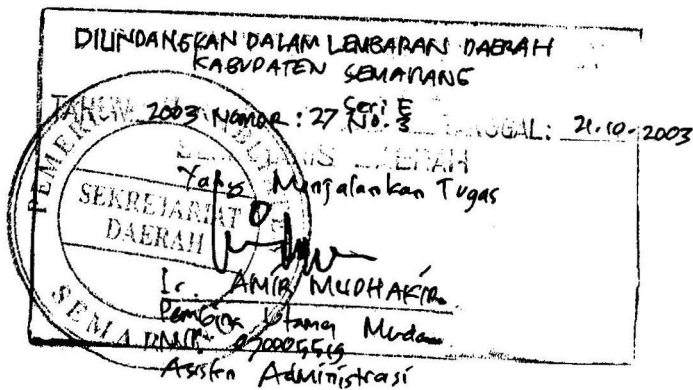 DIUNDANGKAN DALAM LEMBARAN DAERAH
KABUPATEN SEMARANG
TAHUN 2003 NOMOR : 27 Seri E No. 3 TANGGAL: 21-10-2003
SEKRETARIS DAERAH
Yang Menjalankan Tugas
PEMERINTAH
SEKRETARIAT
DAERAH
SEMARANG
Ir. AMIR MUDHAKIR
Pembina Utama Muda
Asisten Administrasi